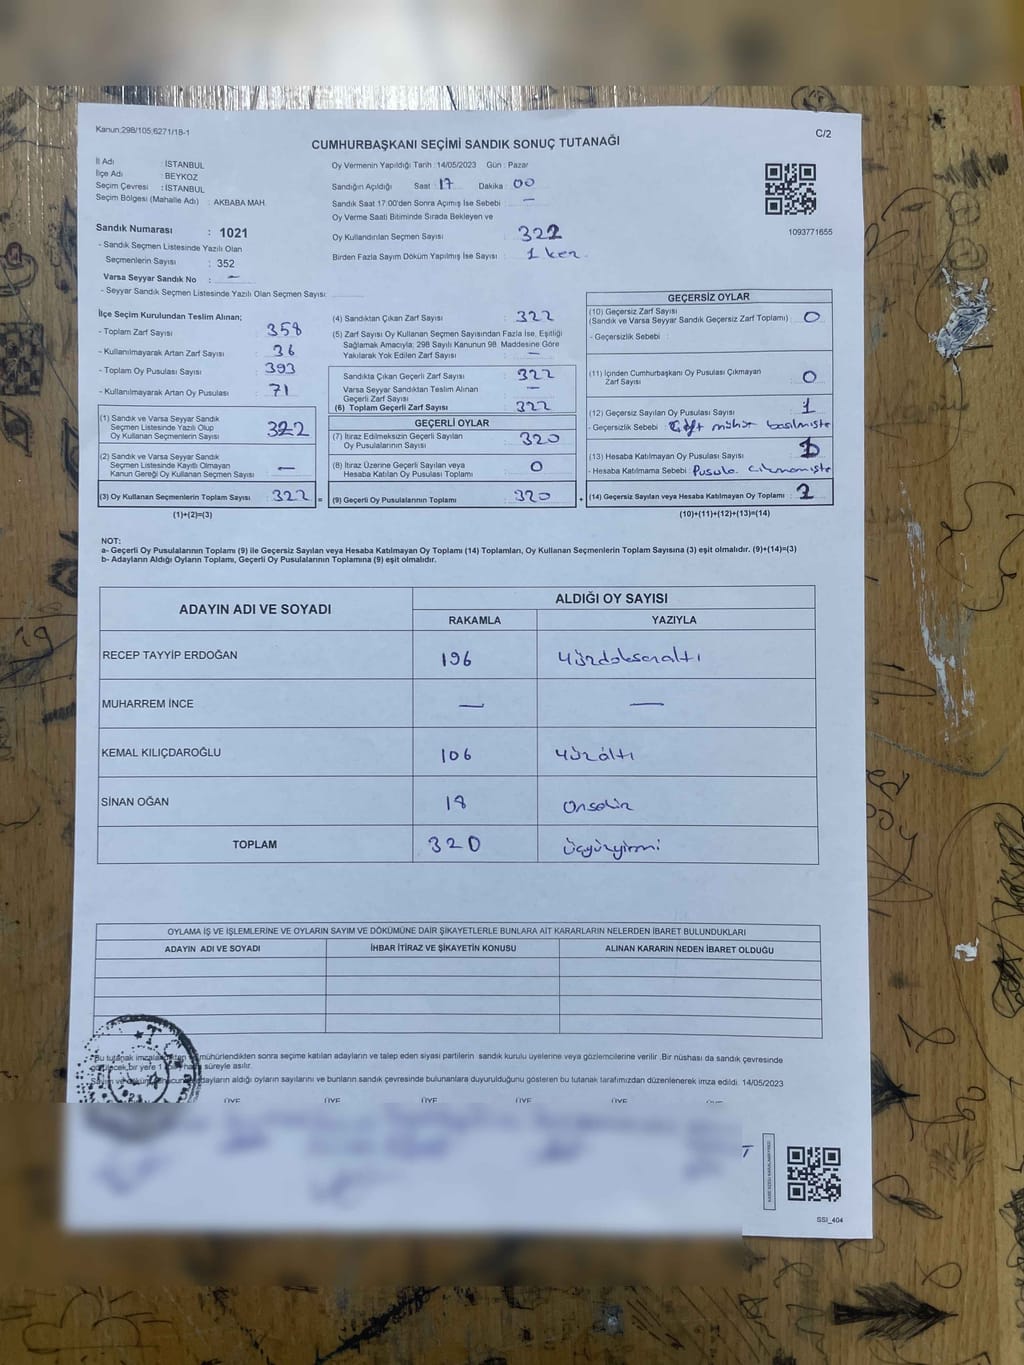 Kanun:298/105,6271/18-1
C/2
CUMHURBAŞKANI SEÇİMİ SANDIK SONUÇ TUTANAĞI
İl Adı : İSTANBUL
İlçe Adı : BEYKOZ
Seçim Çevresi : İSTANBUL
Seçim Bölgesi (Mahalle Adı) : AKBABA MAH.
Oy Vermenin Yapıldığı Tarih : 14/05/2023 Gün : Pazar
Sandığın Açıldığı Saat : 17 Dakika : 00
Sandık Saat 17:00'den Sonra Açımış İse Sebebi : —
Oy Verme Saati Bitiminde Sırada Bekleyen ve
Oy Kullandırılan Seçmen Sayısı : 322
Birden Fazla Sayım Döküm Yapılmış İse Sayısı : 1 kez
1093771655
Sandık Numarası : 1021
- Sandık Seçmen Listesinde Yazılı Olan
Seçmenlerin Sayısı : 352
Varsa Seyyar Sandık No : —
- Seyyar Sandık Seçmen Listesinde Yazılı Olan Seçmen Sayısı :
İlçe Seçim Kurulundan Teslim Alınan;
- Toplam Zarf Sayısı : 358
- Kullanılmayarak Artan Zarf Sayısı : 36
- Toplam Oy Pusulası Sayısı : 393
- Kullanılmayarak Artan Oy Pusulası : 71
(1) Sandık ve Varsa Seyyar Sandık
Seçmen Listesinde Yazılı Olup
Oy Kullanan Seçmenlerin Sayısı : 322
(2) Sandık ve Varsa Seyyar Sandık
Seçmen Listesinde Kayıtlı Olmayan
Kanun Gereği Oy Kullanan Seçmen Sayısı : —
(3) Oy Kullanan Seçmenlerin Toplam Sayısı : 322 =
(1)+(2)=(3)
(4) Sandıktan Çıkan Zarf Sayısı : 322
(5) Zarf Sayısı Oy Kullanan Seçmen Sayısından Fazla İse, Eşitliği
Sağlamak Amacıyla; 298 Sayılı Kanunun 98. Maddesine Göre
Yakılarak Yok Edilen Zarf Sayısı : —
Sandıkta Çıkan Geçerli Zarf Sayısı : 322
Varsa Seyyar Sandıktan Teslim Alınan
Geçerli Zarf Sayısı : —
(6) Toplam Geçerli Zarf Sayısı : 322
GEÇERLİ OYLAR
(7) İtiraz Edilmeksizin Geçerli Sayılan
Oy Pusulalarının Sayısı : 320
(8) İtiraz Üzerine Geçerli Sayılan veya
Hesaba Katılan Oy Pusulası Toplamı : 0
(9) Geçerli Oy Pusulalarının Toplamı : 320 +
GEÇERSİZ OYLAR
(10) Geçersiz Zarf Sayısı
(Sandık ve Varsa Seyyar Sandık Geçersiz Zarf Toplamı) : 0
- Geçersizlik Sebebi :
(11) İçinden Cumhurbaşkanı Oy Pusulası Çıkmayan
Zarf Sayısı : 0
(12) Geçersiz Sayılan Oy Pusulası Sayısı : 1
- Geçersizlik Sebebi : Çift mühür basılmıştır
(13) Hesaba Katılmayan Oy Pusulası Sayısı : 1
- Hesaba Katılmama Sebebi : Pusula çıkmamıştır
(14) Geçersiz Sayılan veya Hesaba Katılmayan Oy Toplamı : 2
(10)+(11)+(12)+(13)=(14)
NOT:
a- Geçerli Oy Pusulalarının Toplamı (9) ile Geçersiz Sayılan veya Hesaba Katılmayan Oy Toplamı (14) Toplamları, Oy Kullanan Seçmenlerin Toplam Sayısına (3) eşit olmalıdır. (9)+(14)=(3)
b- Adayların Aldığı Oyların Toplamı, Geçerli Oy Pusulalarının Toplamına (9) eşit olmalıdır.
ADAYIN ADI VE SOYADI
ALDIĞI OY SAYISI
RAKAMLA YAZIYLA
RECEP TAYYİP ERDOĞAN 196 Yüzdoksanaltı
MUHARREM İNCE — —
KEMAL KILIÇDAROĞLU 106 Yüzaltı
SİNAN OĞAN 18 Onsekiz
TOPLAM 320 Üçyüzyirmi
OYLAMA İŞ VE İŞLEMLERİNE VE OYLARIN SAYIM VE DÖKÜMÜNE DAİR ŞİKAYETLERLE BUNLARA AİT KARARLARIN NELERDEN İBARET BULUNDUKLARI
ADAYIN ADI VE SOYADI İHBAR İTİRAZ VE ŞİKAYETİN KONUSU ALINAN KARARIN NEDEN İBARET OLDUĞU
Bu tutanak mühürlendikten sonra seçime katılan adayların ve talep eden siyasi partilerin sandık kurulu üyelerine veya gözlemcilerine verilir .Bir nüshası da sandık çevresinde
bir yere 1 süreyle asılır.
adayların aldığı oyların sayılarını ve bunların sandık çevresinde bulunanlara duyurulduğunu gösteren bu tutanak tarafımızdan düzenlenerek imza edildi. 14/05/2023
ÜYE ÜYE ÜYE ÜYE ÜYE
SSI_404